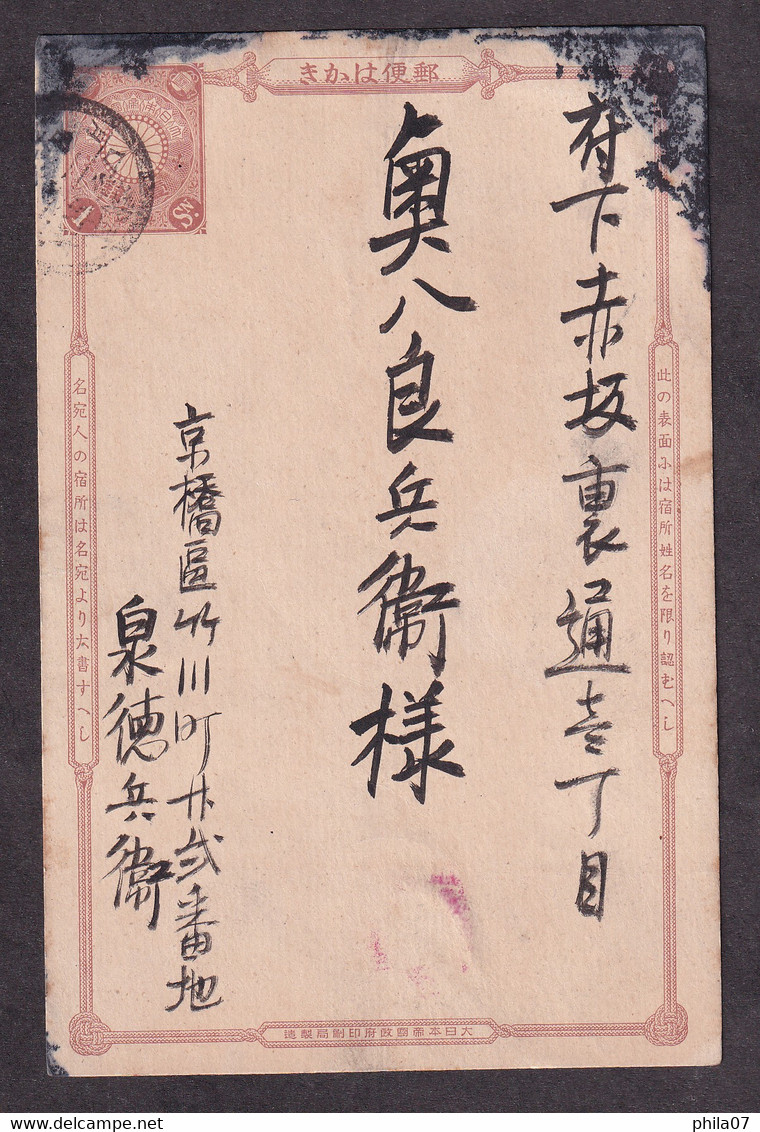 郵便はかき
大日本帝國郵便
1 Sn.
此の表面には宿所姓名を限り認むへし
府下赤坂裏通壱丁目
奥八良兵衛様
京橋區竹川町廿弐番地
泉徳兵衛
名宛人の宿所は名宛より大書すへし
大日本帝國政府印刷局製造
www.delcampe.net
phila07